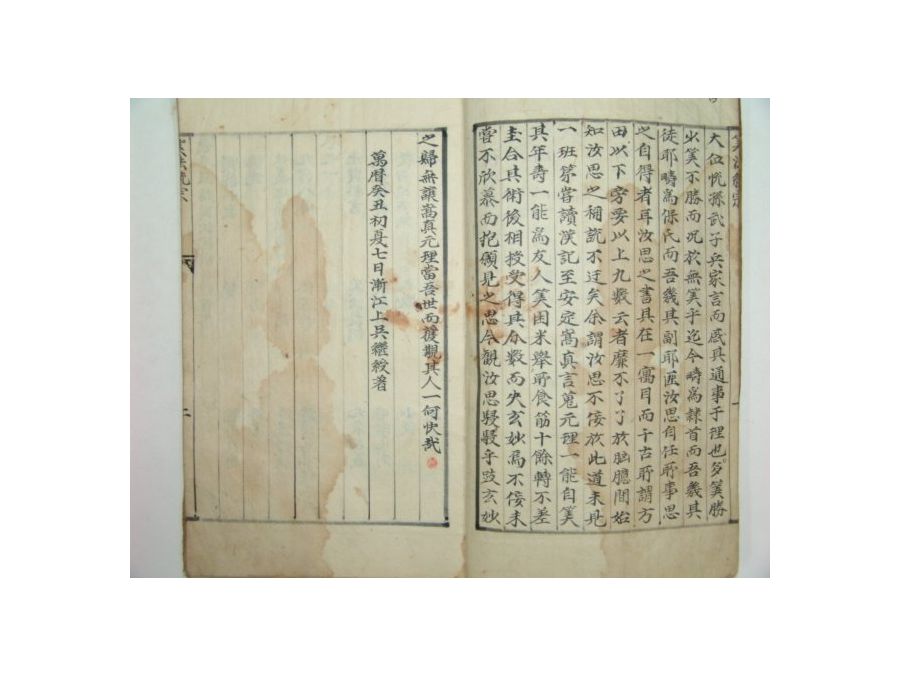 大位恍孫武子兵家言而感具通事于理也多筭勝
少筭不勝而况於無筭乎迄今時為隷首而吾幾其
徒耶時為保氏而吾幾其副耶匪汝思自任所事思
之自得者耳汝思之書具在一寓目而千古所謂方
田以下旁要以上九數云者靡不了了於胸臆間始
知汝思之稱説不迂矣余謂汝思不佞於此道未見
一班第嘗讀漢記至安定嵩真言蒐元理一能自筭
其年壽一能為友人筭囷米舉所食筋十餘轉不差
圭合其術後相授受得其分數而失玄妙焉不佞未
嘗不欣慕而抱願見之思今觀汝思駸駸乎跂玄妙
之歸無讓嵩真元理當吾世而獲覯其人一何快哉
萬曆癸丑初夏七日浙江上吳繼綬著
二